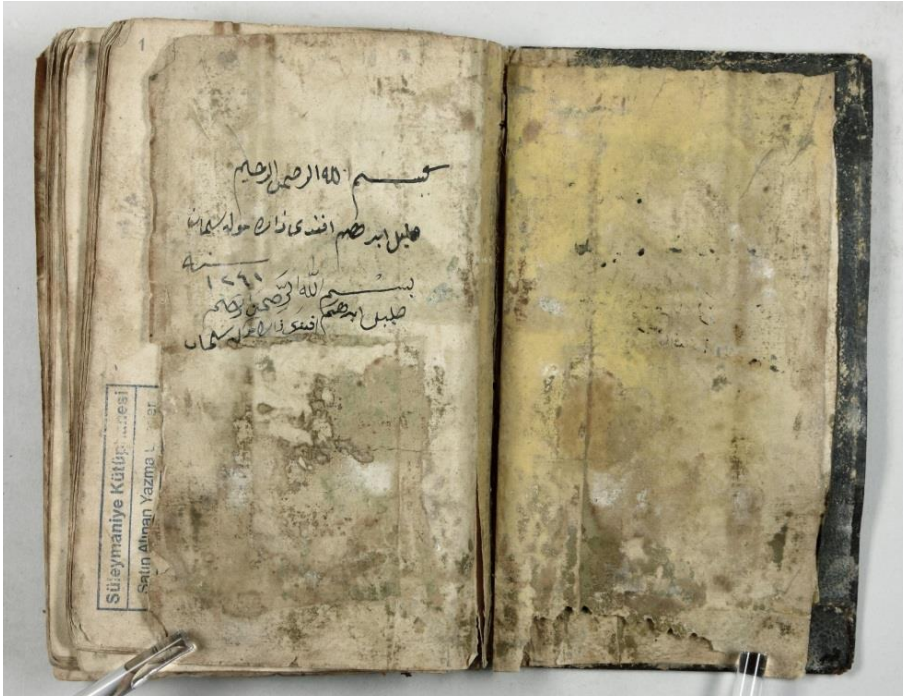 بسم الله الرحمن الرحيم
خليل ابرهيم افندى زاده مولا سليمان
سنه
١٢٤١
بســم الله الرَّحمن الرحيم
خليل ابرهيم افندى زاده مولا سليمان
1
Süleymaniye Kütüp nesi
Satın Alınan Yazma